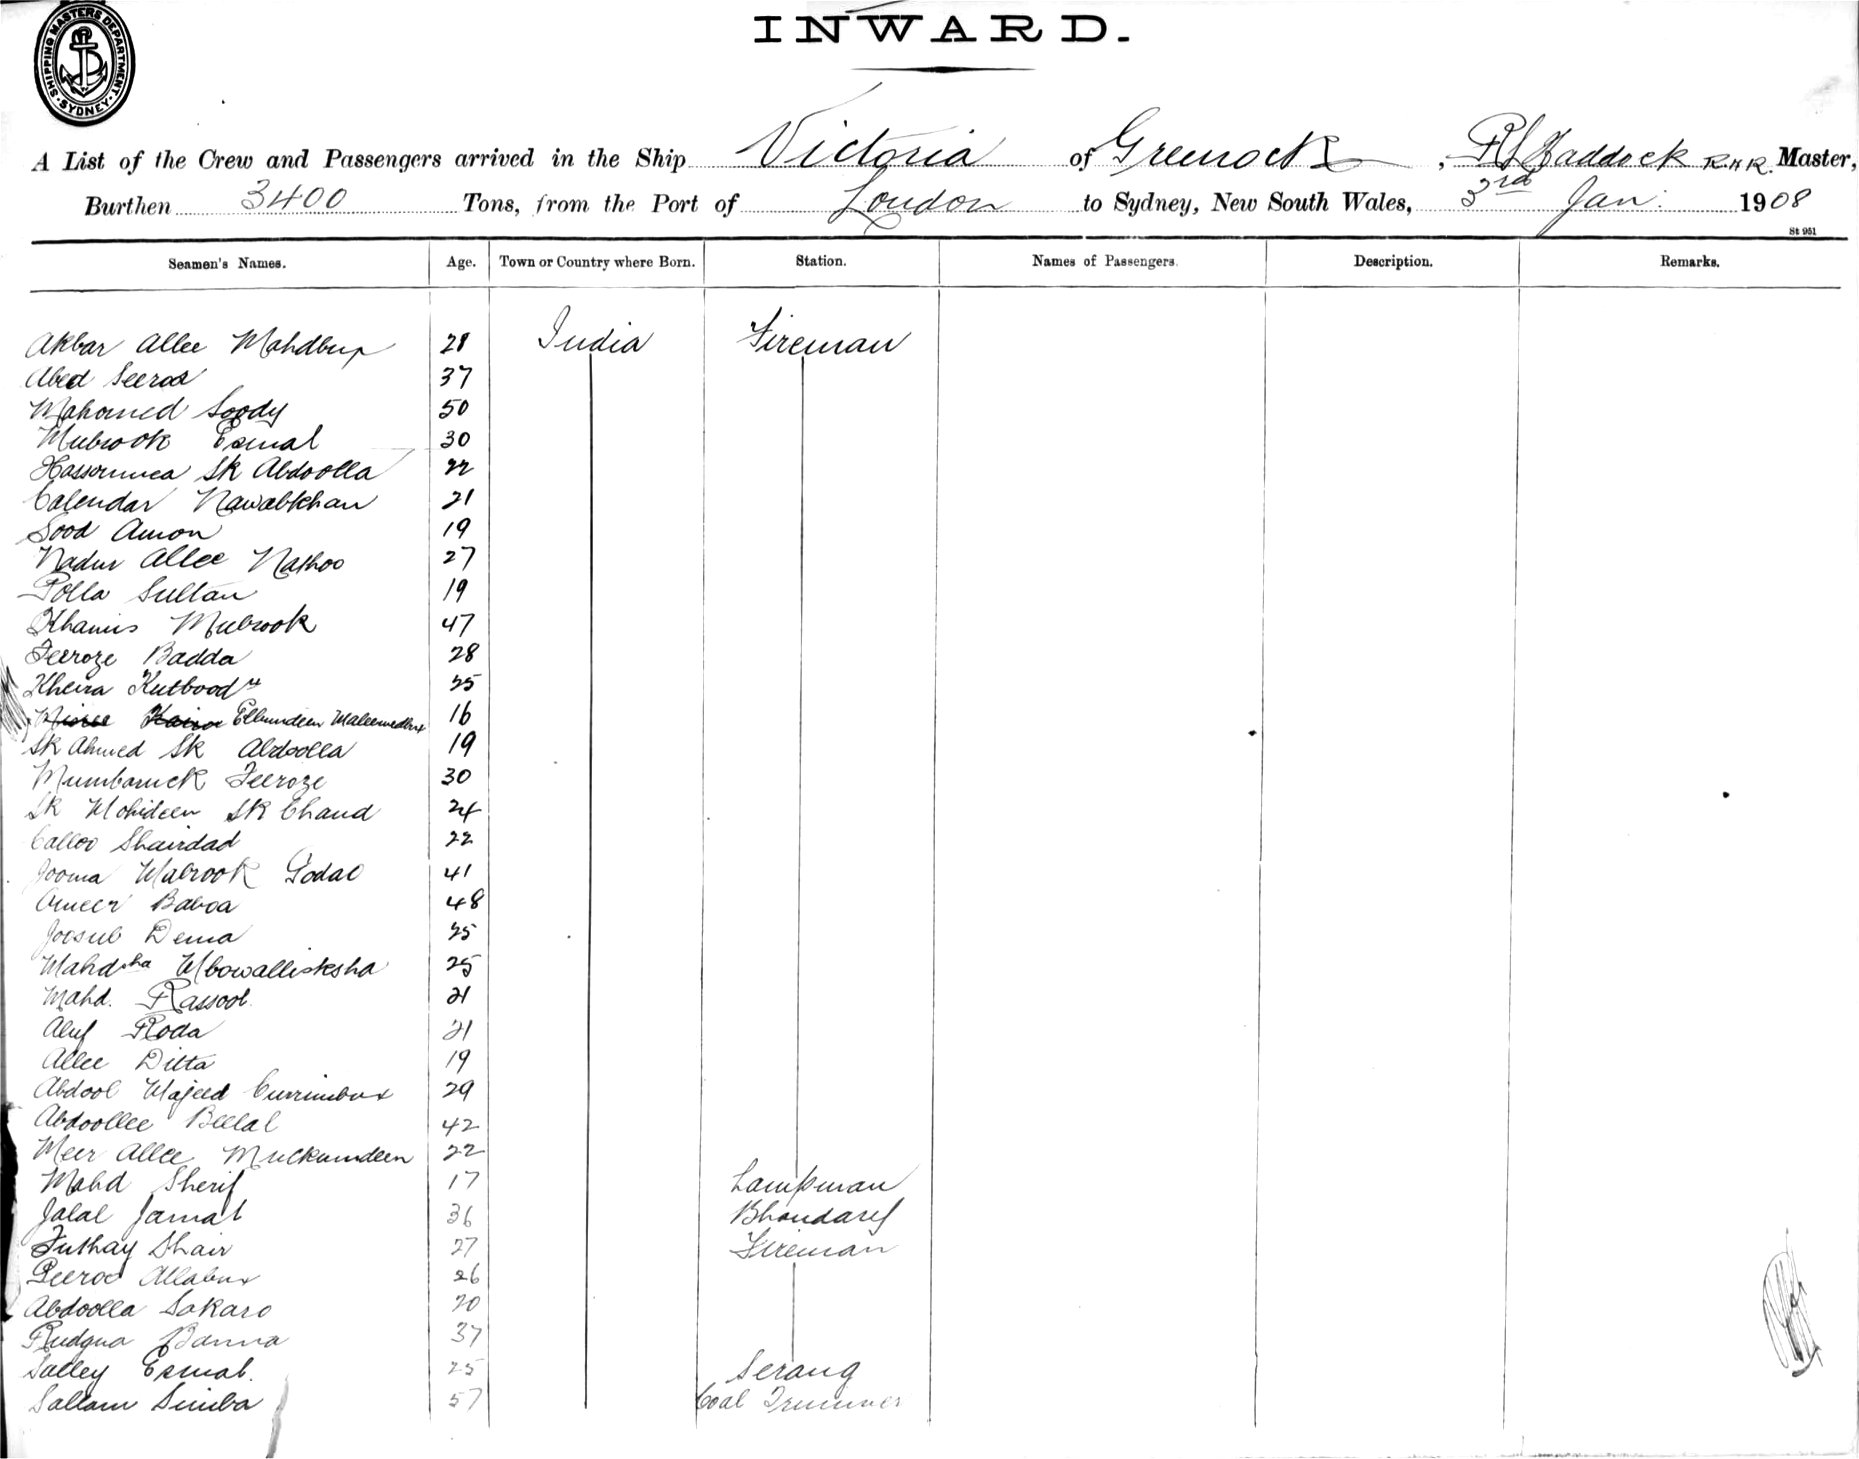 INWARD.
SHIPPING MASTERS DEPARTMENT
SYDNEY
A List of the Crew and Passengers arrived in the Ship Victoria of Greenock, Haddock R.N.R. Master,
Burthen 3400 Tons, from the Port of London to Sydney, New South Wales, 3rd Jan. 1908
St 951
Seamen's Names. Age. Town or Country where Born. Station. Names of Passengers. Description. Remarks.
Akbar Allee Mahdbux 28 India Fireman
Abed Seeroo 37
Mahomed Soody 50
Mubrook Esmal 30
Hassounmea Sk Abdoolla 22
Calendar Nawabkhan 21
Sood Amon 19
Nadur Allee Nathoo 27
Polla Sultan 19
Khamis Mubrook 47
Feeroze Badda 28
Kheira Kutbood 25
Maleemedbux 16
Sk Ahmed Sk Abdoolla 19
Mumbaruck Feeroze 30
Sk Mohideen Sk Chand 24
Calloo Shairdad 22
Jooma Mabrook Godad 41
Ameer Baboa 48
Joosub Dema 25
Mahdsha 25
Mahd. Rassool 21
Aluf Roda 21
Allee Ditta 19
Abdool Majeed Currimbux 29
Abdoollee Beelal 42
Meer Allee Muckumdeen 22
Mahd Sherif 17 Lampman
Jalal Jamal 36 Bhandary
Futhay Shair 27 Fireman
Peeroo Allabux 26
Abdoolla Sakaro 20
Banna 37
Salley Esmal. 25 Serang
Sallam Simba 57 Coal Trimmer